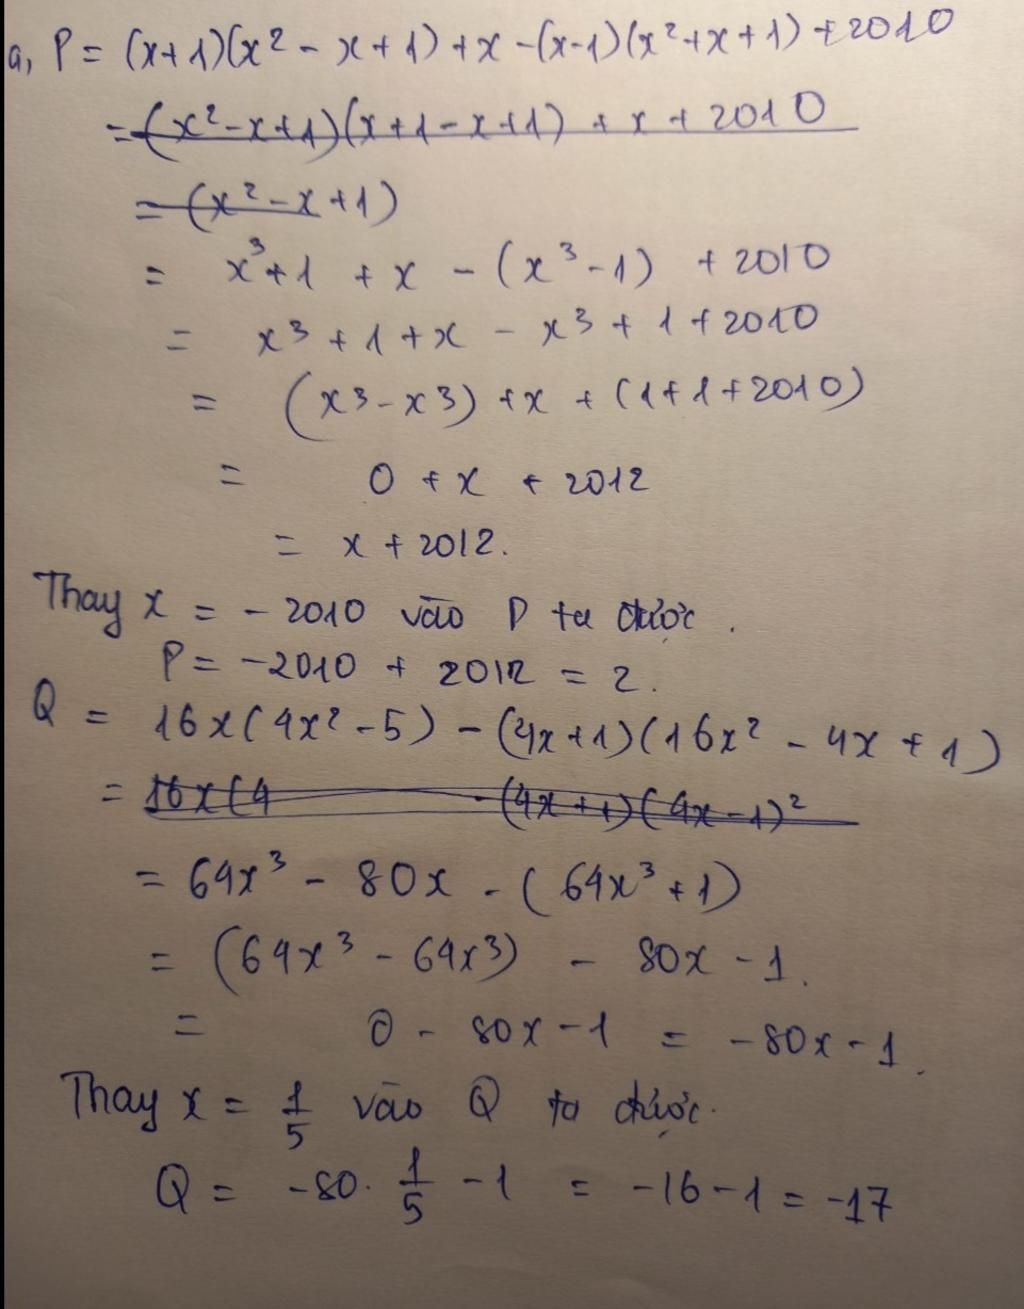 a, P = (x+1)(x² - x + 1) + x - (x-1)(x²+x+1) + 2010
= (x²-x+1)(x+1-x+1) + x + 2010
= (x²-x+1)
= x³+1 + x - (x³-1) + 2010
= x³ + 1 + x - x³ + 1 + 2010
= (x³-x³) + x + (1+1+2010)
= 0 + x + 2012
= x + 2012.
Thay x = -2010 vào P ta được.
P = -2010 + 2012 = 2.
Q = 16x(4x²-5) - (4x+1)(16x² - 4x + 1)
= 16x(4 - (4x+1)(4x-1)²
= 64x³ - 80x - (64x³+1)
= (64x³ - 64x³) - 80x - 1.
= 0 - 80x - 1 = -80x - 1.
Thay x = 1/5 vào Q ta được.
Q = -80 . 1/5 - 1 = -16 - 1 = -17